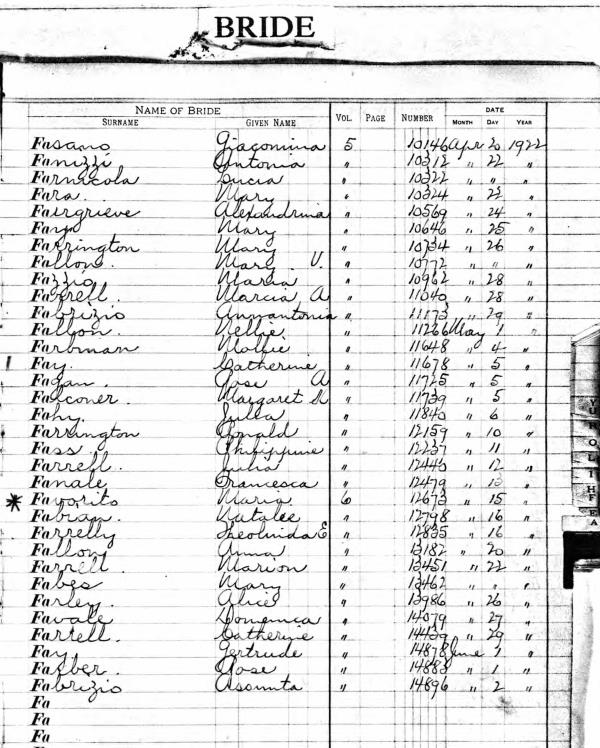 BRIDE
NAME OF BRIDE DATE
SURNAME GIVEN NAME VOL. PAGE NUMBER MONTH DAY YEAR
Fasano Giacomina 5 10146 Apr 20 1922
Fanizzi Antonia " 10312 " 22 "
Farnicola Lucia " 10322 " " "
Fara. Mary " 10324 " 22 "
Fairgrieve Alexandrina " 10569 " 24 "
Fay Mary " 10646 " 25 "
Farrington Mary " 10734 " 26 "
Fallon. Mary V. " 10772 " " "
Fazzio Maria " 10962 " 28 "
Farrell. Marcia A " 11040 " 28 "
Fabrizio Annantonia " 11173 " 29 "
Fallon. Nellie " 11266 May 1 "
Farbman Mollie " 11648 " 4 "
Fay. Catherine " 11678 " 5 "
Fagan. Rose A " 11725 " 5 "
Falconer. Margaret " 11739 " 5 "
Fahy. Julia " 11840 " 6 "
Farrington Donald " 12159 " 10 "
Fass Philippine " 12237 " 11 "
Farrell. Julia " 12440 " 12 "
Fanale Francesca " 12479 " 13 "
* Favorito Maria 6 12673 " 15 "
Fabian. Natalie " 12798 " 16 "
Farrelly E " 12835 " 16 "
Fallon Anna " 13182 " 20 "
Farrell. Marion " 13451 " 22 "
Fabes Mary " 13462 " " "
Farley. Alice " 13986 " 26 "
Favale Domenica " 14079 " 27 "
Farrell. Catherine " 14439 " 29 "
Fay. Gertrude " 14878 June 1 "
Farber. Rose " 14888 " 1 "
Fabrizio Assunta " 14896 " 2 "
Fa
Fa
Fa